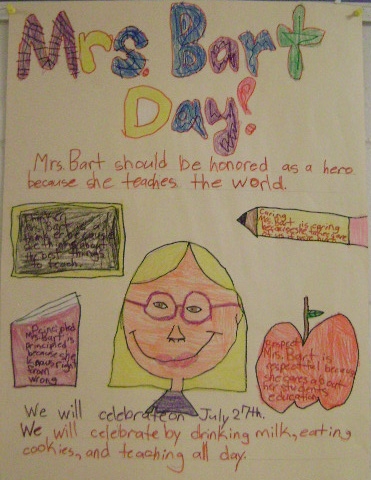 Mrs. Bart
Day!
Mrs. Bart should be honored as a hero
because she teaches the world.
Mrs. Bart is
to teach.
Caring
Mrs. Bart is caring
because she takes care
Principled
Mrs. Bart is
principled
because she
knows right
from
wrong
Respect
Mrs. Bart is
respectful because
she cares about
her students
education
We will celebrate on July 27th.
We will celebrate by drinking milk, eating
cookies, and teaching all day.